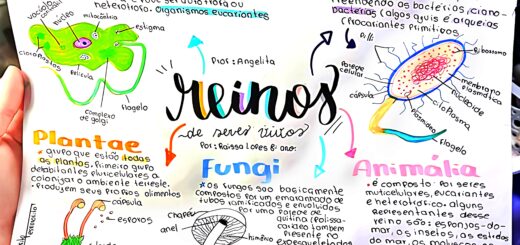 heterótrofo. Organismos eucariantes
vacúolo
contrátil
núcleo
mitocôndria
estigma
cloroplastos
película
flagelo
complexo
de golgi
bactérias (algas azuis e arqueias
(Procariontes primitivos.
Prof: Angelita
reinos
de seres vivos
Por: Raissa Lopes 8º ano:
Parede
celular
Ribossomo
membrana
plasmática
nucleoide
citoplasma
cápsula
plasmídeo
flagelo
Plantae
• grupo que estão todas
as plantas. Primeiro grupo
de habitantes pluricelulares a
colonizar o ambiente terreste.
• Produzem seus próprios alimentos
cápsula
esporos
Fungi
*os fungos são basicamente
compostos por um emaranhado de
tubos ramificados e envolvidos
por uma parede de
quitina (Polissa-
carídeo também
presente no
exoesqueleto
chapéu
anel
himênio
Animália
• é composto por seres
multicelulares, eucariontes
e heterotófico: alguns
representantes desse
reino são: esponjas-do-
mar, os insetos, as estrelas
do mar, os moluscos